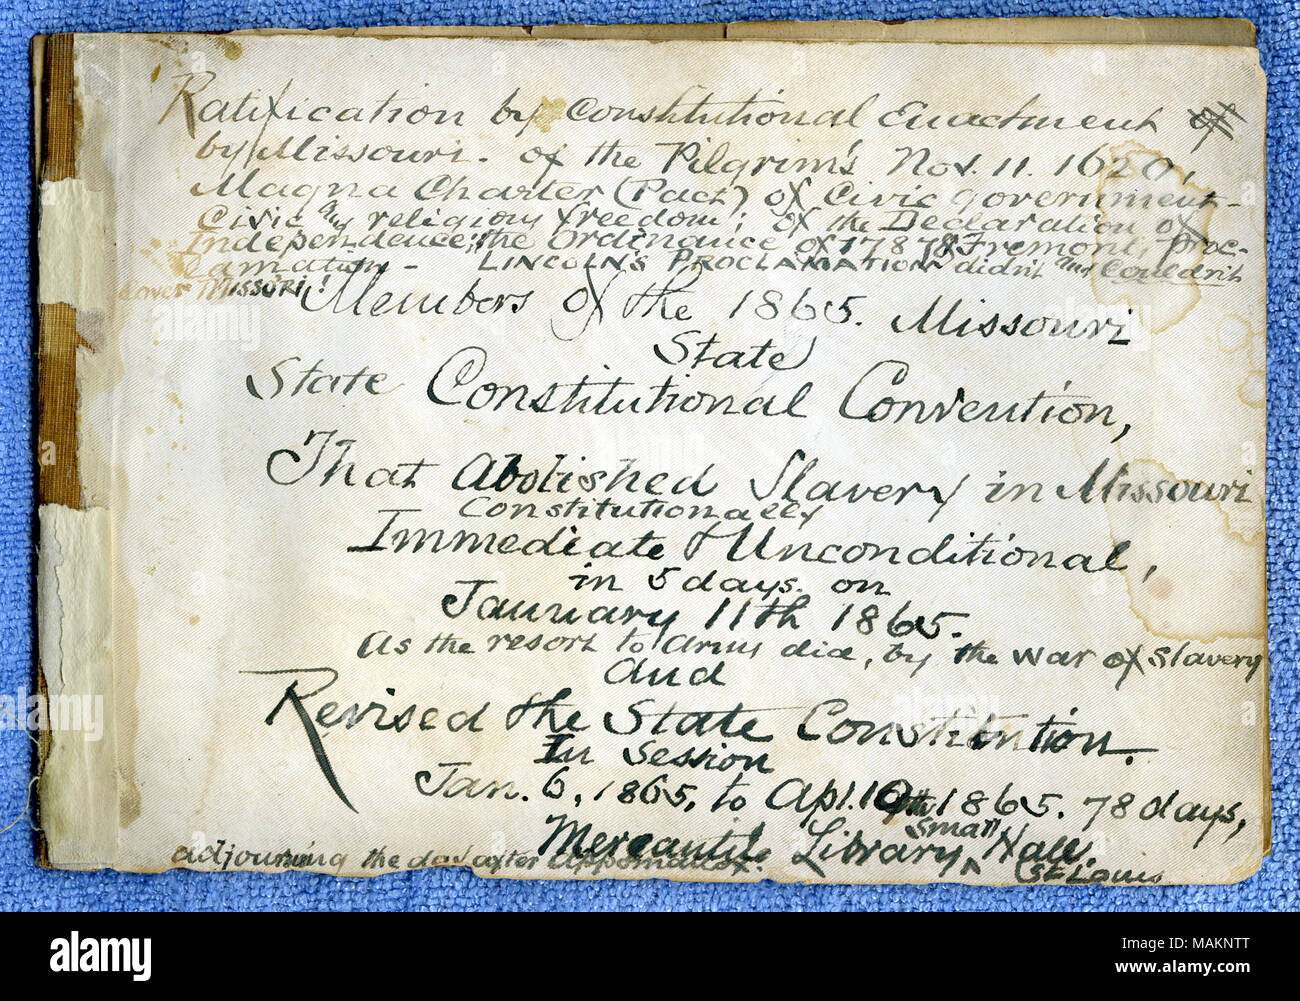 Ratification by Constitutional Enactment of
by Missouri. of the Pilgrim's Nov. 11. 1620,
Magna Charter (Pact) of Civic government-
Civic and religious freedom; of the Declaration of
Independence; the Ordinance of 1787 & Fremont, Proc-
lamation - LINCOLN'S PROCLAMATION didn't and couldn't
cover MISSOURI!
Members of the 1865. Missouri
State
State Constitutional Convention,
That Abolished Slavery in Missouri
Constitutionally
Immediate & Unconditional,
in 5 days. on
January 11th 1865.
As the resort to arms did, by the war of slavery
and
Revised the State Constitution.
In Session
Jan. 6, 1865, to Apl. 10th 1865. 78 days,
small
Mercantile Library ^ Hall.
adjourning the day after Appomattox. St Louis
alamy
Image ID: MAKNTT
www.alamy.com